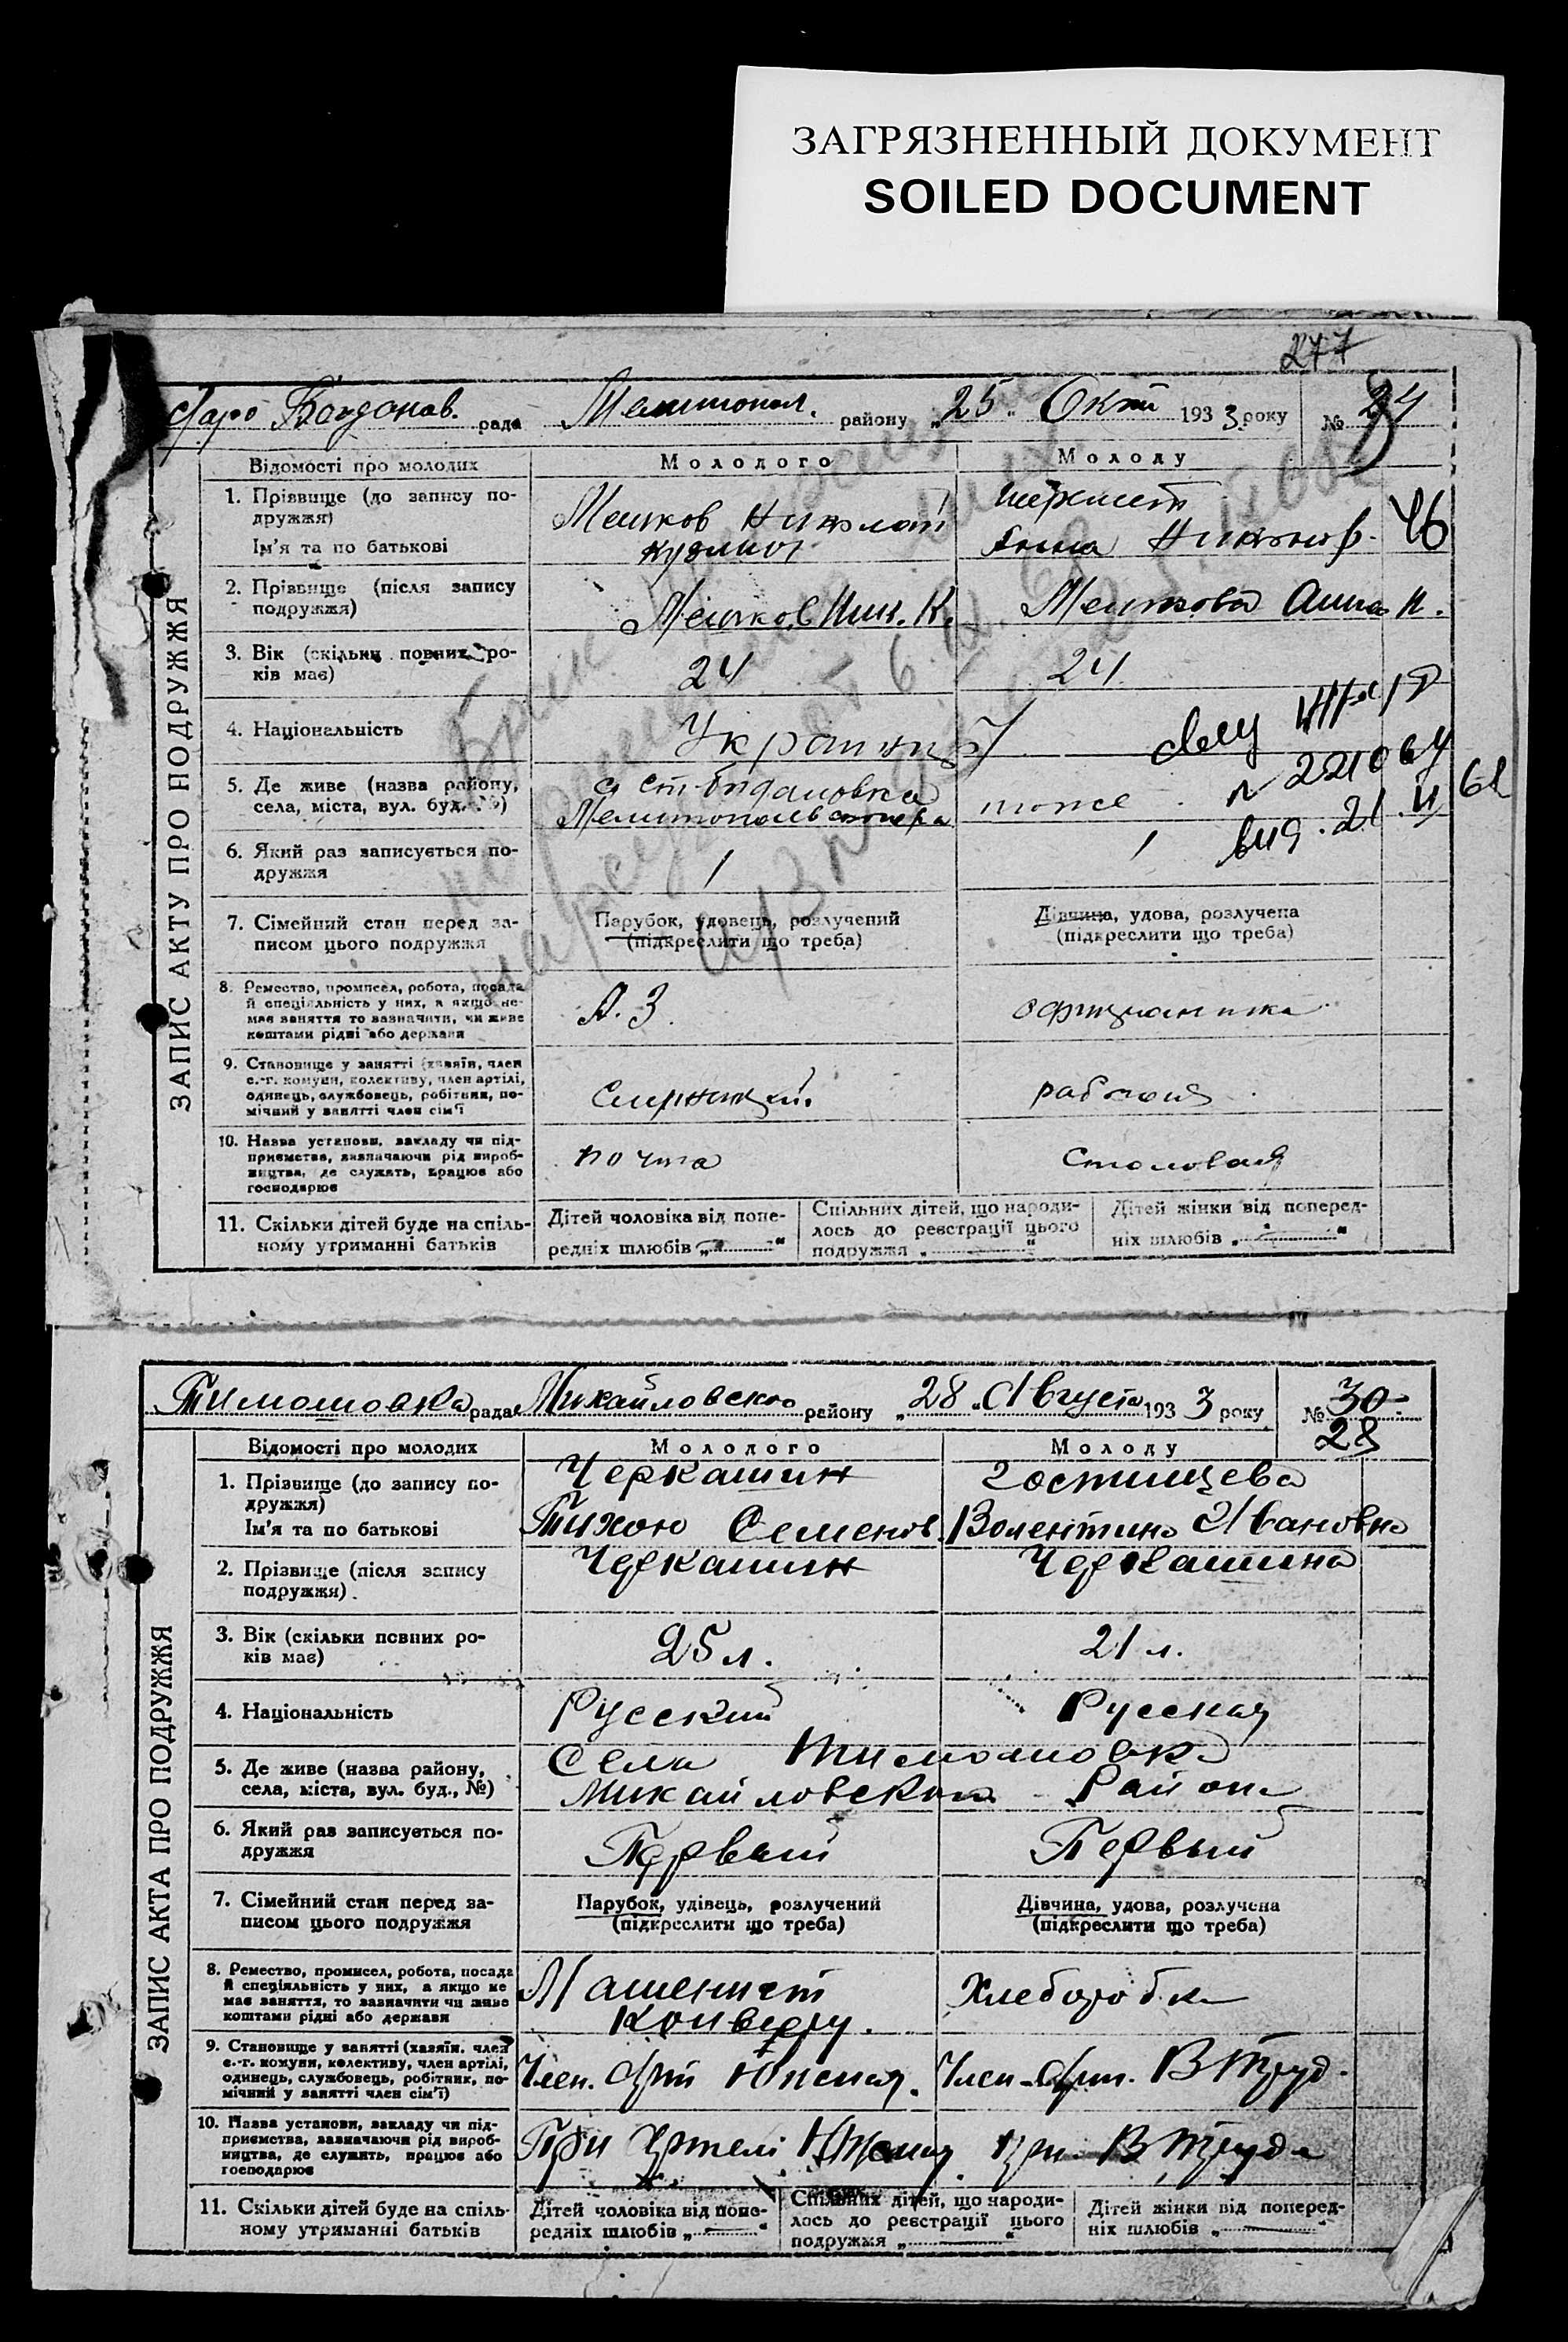 ЗАГРЯЗНЕННЫЙ ДОКУМЕНТ
SOILED DOCUMENT
277
Старо Богданов. рада Мелитопол. району „25„ Окт 1933 року № 24
ЗАПИС АКТУ ПРО ПОДРУЖЖЯ
Відомості про молодих
Молодого
Молоду
1. Прізвище (до запису по-
дружжя)
Ім'я та по батькові
Мешков Николай
Анна Никонор.
46
2. Прізвище (після запису
подружжя)
Мешков Ник. К.
Мешкова Анна Н.
3. Вік (скільки повних ро-
ків має)
24
24
4. Національність
Украинцы
5. Де живе (назва району,
села, міста, вул. буд. №)
с ст-Богдановка
Мелитопольского р-на
тоже
6. Який раз записується по-
дружжя
1
1
7. Сімейний стан перед за-
писом цього подружжя
Парубок, удовець, розлучений
(підкреслити що треба)
Дівчина, удова, розлучена
(підкреслити що треба)
8. Ремество, промисел, робота, посада
й спеціяльність у них, а якщо не-
має заняття то зазначити, чи живе
коштами рідні або держави
А. З.
официантка
9. Становище у занятті (хазяїн, член
с.-г. комуни, колективу, член артілі,
одинець, службовець, робітник, по-
мічний у занятті член сім'ї
Служащий.
рабочая
10. Назва установи, закладу чи під-
приємства, зазначаючи рід вироб-
ництва, де служить, працює або
господарює
почта
Столовая
11. Скільки дітей буде на спіль-
ному утриманні батьків
Дітей чоловіка від попе-
редніх шлюбів „—“
Спільних дітей, що народи-
лось до реєстрації цього
подружжя „ “
Дітей жінки від поперед-
ніх шлюбів „—“
Тимошовка рада Михайловского району „28„ Августа 1933 року № 30
28
ЗАПИС АКТА ПРО ПОДРУЖЖЯ
Відомості про молодих
Молодого
Молоду
1. Прізвище (до запису по-
дружжя)
Ім'я та по батькові
Черкашин
Тихон Семенов.
Гостищева
Волентина Ивановна
2. Прізвище (після запису
подружжя)
Черкашин
Черкашина
3. Вік (скільки повних ро-
ків має)
25 л.
21 л.
4. Національність
Русский
Русская
5. Де живе (назва району,
села, міста, вул. буд., №)
Села Тимошовка
Михайловского Района
6. Який раз записується по-
дружжя
Первый
Первый
7. Сімейний стан перед за-
писом цього подружжя
Парубок, удівець, розлучений
(підкреслити що треба)
Дівчина, удова, розлучена
(підкреслити що треба)
8. Ремество, промисел, робота, посада
й спеціяльність у них, а якщо не
має заняття, то зазначити чи живе
коштами рідні або держави
Машенист
Хлеборобка
9. Становище у занятті (хазяїн, член
с.-г. комуни, колективу, член артілі,
одинець, службовець, робітник, по-
мічний у занятті член сім'ї)
Член. Арт
Член-Арт. В Труд.
10. Назва установи, закладу чи під-
приємства, зазначаючи рід вироб-
ництва, де служить, працює або
господарює
При Артели
В Труда
11. Скільки дітей буде на спіль-
ному утриманні батьків
Дітей чоловіка від попе-
редніх шлюбів „—“
Спільних дітей, що народи-
лось до реєстрації цього
подружжя „—“
Дітей жінки від поперед-
ніх шлюбів „—“